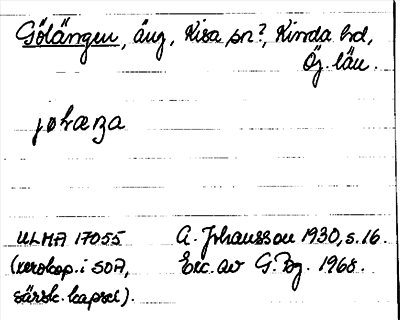 Gölängen, äng, Kisa sn?, Kinda hd,
Ög. län.
ULMA 17055 A. Johansson 1930, s. 16.
(xerokop. i SOA, Exc. av G. Bg. 1968.
särsk. kapsel).